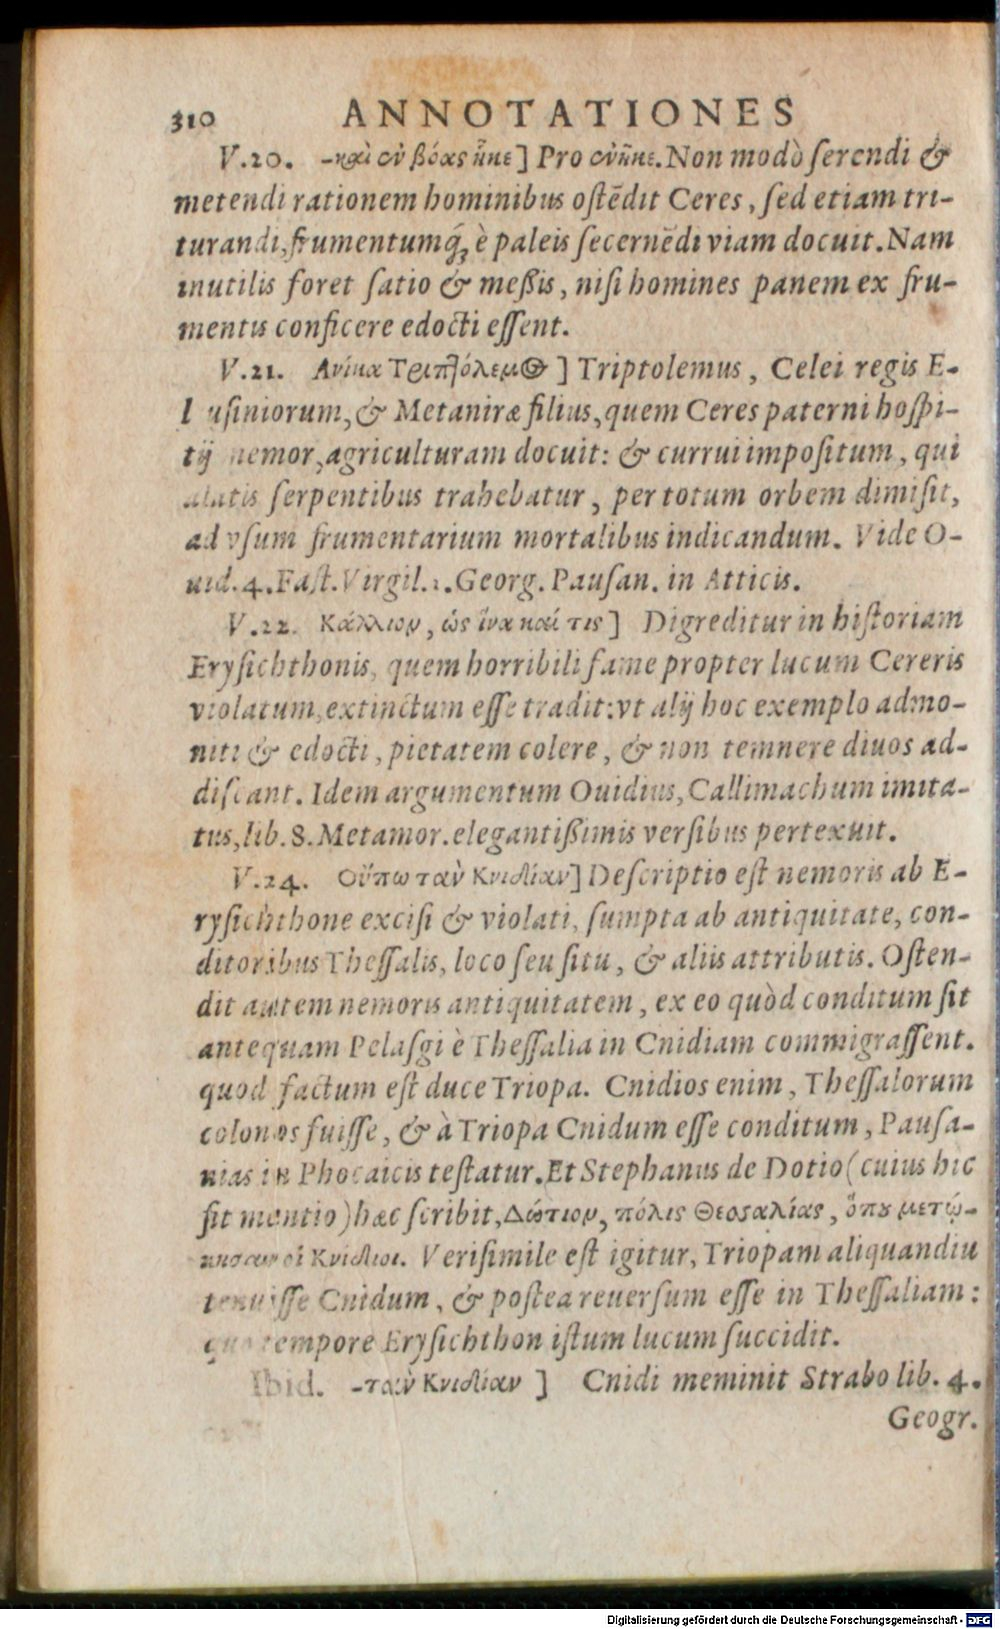 310 ANNOTATIONES
V.20. -καὶ ἐν βόας ἧκε] Pro ἐνῆκε. Non modò ſerendi &
metendi rationem hominibus oſtẽdit Ceres, ſed etiam tri-
turandi, frumentumq́; è paleis ſecernẽdi viam docuit. Nam
inutilis foret ſatio & meßis, niſi homines panem ex fru-
mentis conficere edocti eſſent.
V.21. Ανίκα Τριπτόλεμος] Triptolemus, Celei regis E-
l uſiniorum, & Metaniræ filius, quem Ceres paterni hoſpi-
tij memor, agriculturam docuit: & currui impoſitum, qui
alatis ſerpentibus trahebatur, per totum orbem dimiſit,
ad vſum frumentarium mortalibus indicandum. Vide O-
uid. 4. Faſt. Virgil. 1. Georg. Pauſan. in Atticis.
V.22. Κάλλιον, ὡς ἵνα καί τις] Digreditur in hiſtoriam
Eryſichthonis, quem horribili fame propter lucum Cereris
violatum, extinctum eſſe tradit: vt alij hoc exemplo admo-
niti & edocti, pietatem colere, & non temnere diuos ad-
diſcant. Idem argumentum Ouidius, Callimachum imita-
tus, lib. 8. Metamor. elegantißimis verſibus pertexuit.
V.24. Οὔπω τὰν Κνιδίαν] Deſcriptio eſt nemoris ab E-
ryſichthone exciſi & violati, ſumpta ab antiquitate, con-
ditoribus Theſſalis, loco ſeu ſitu, & aliis attributis. Oſten-
dit autem nemoris antiquitatem, ex eo quòd conditum ſit
antequam Pelaſgi è Theſſalia in Cnidiam commigraſſent.
quod factum eſt duce Triopa. Cnidios enim, Theſſalorum
colonos fuiſſe, & à Triopa Cnidum eſſe conditum, Pauſa-
nias in Phocaicis teſtatur. Et Stephanus de Dotio (cuius hic
fit mentio) hæc ſcribit, Δώτιον, πόλις Θεσσαλίας, ὅπου μετῴ-
κησαν οἱ Κνίδιοι. Veriſimile eſt igitur, Triopam aliquandiu
tenuiſſe Cnidum, & poſtea reuerſum eſſe in Theſſaliam:
quo tempore Eryſichthon iſtum lucum ſuccidit.
Ibid. -τὰν Κνιδίαν] Cnidi meminit Strabo lib. 4.
Geogr.
Digitalisierung gefördert durch die Deutsche Forschungsgemeinschaft - DFG